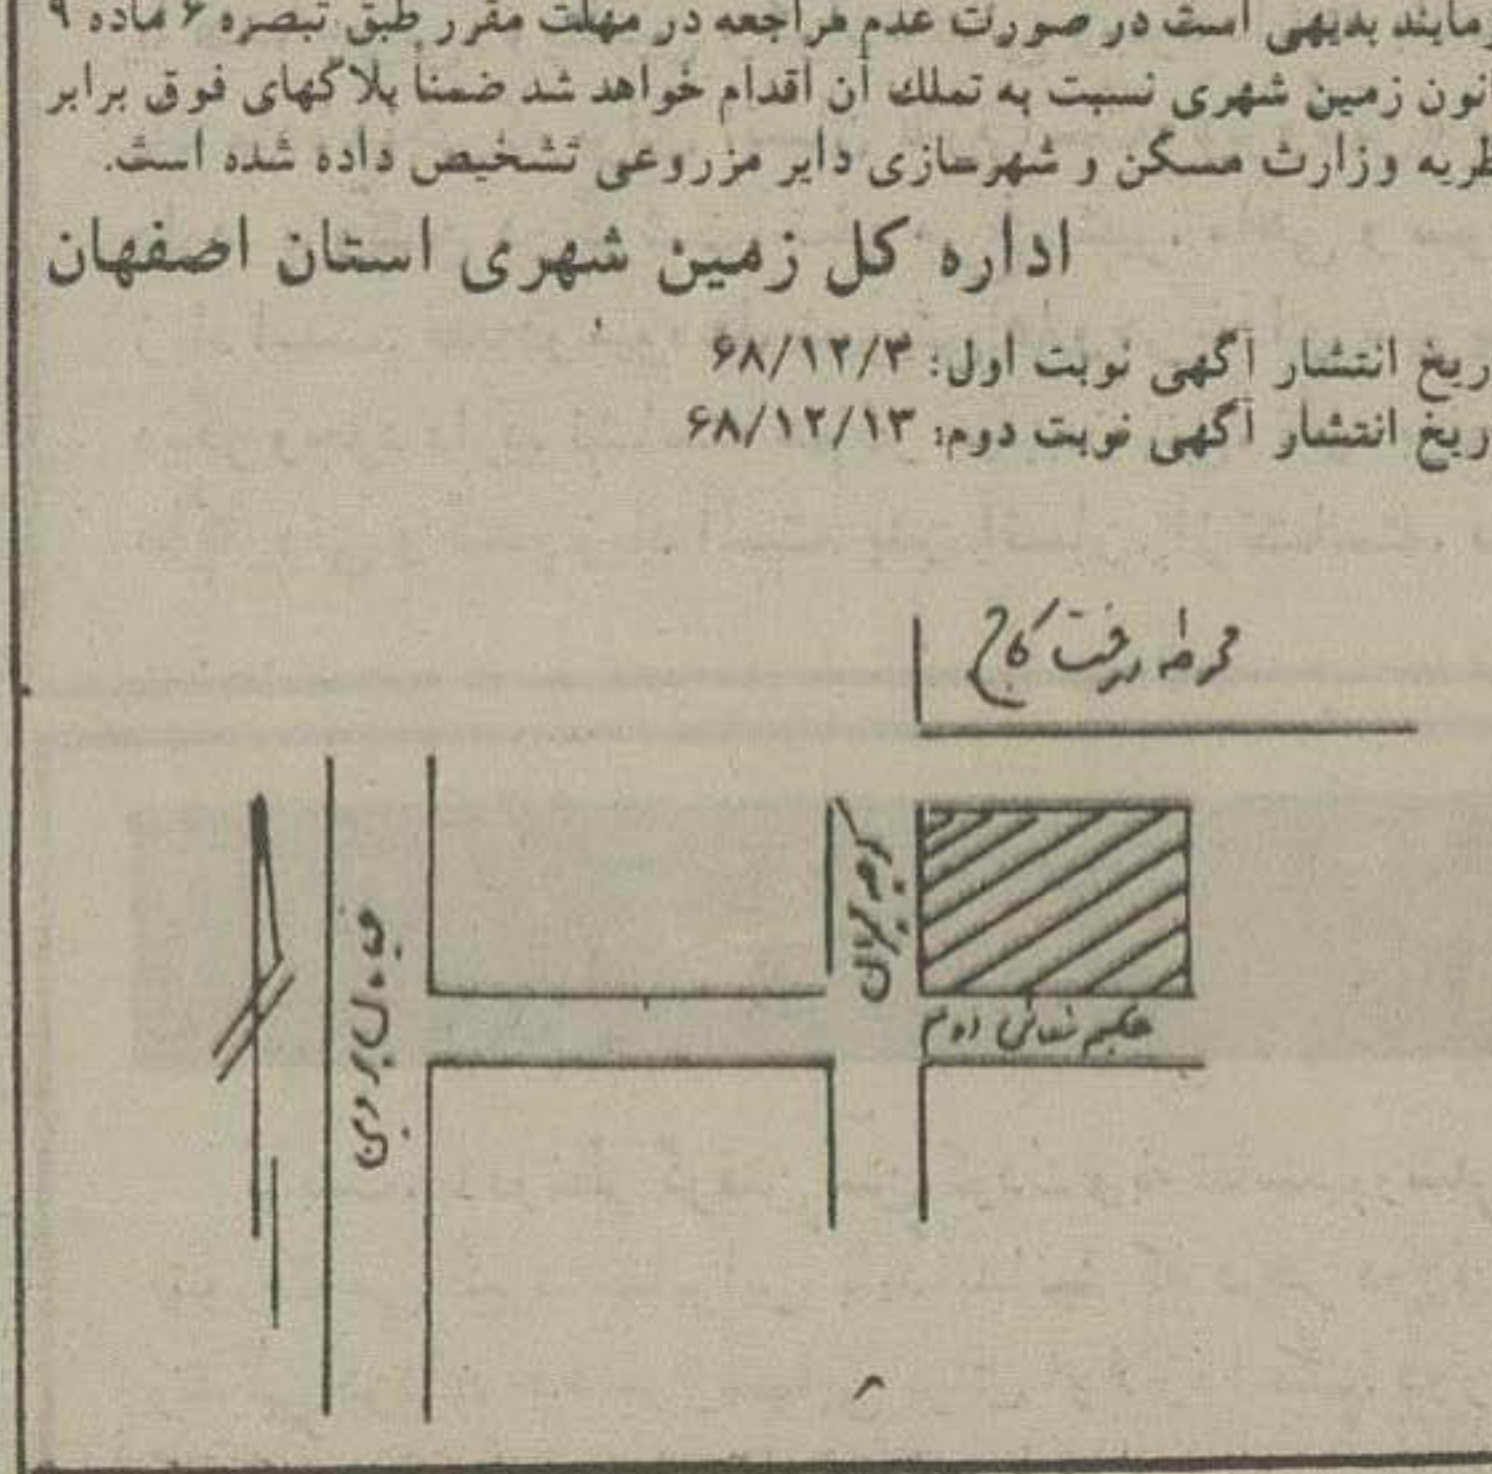 رمایند بدیهی است در صورت عدم مراجعه در مهلت مقرر طبق تبصره ۶ ماده ۹
انون زمین شهری نسبت به تملك آن اقدام خواهد شد ضمناً پلاکهای فوق برابر
ظریه وزارت مسکن و شهرسازی دایر مزروعی تشخیص داده شده است.
اداره کل زمین شهری استان اصفهان
ریخ انتشار آگهی نوبت اول: ۶۸/۱۲/۳
ریخ انتشار آگهی نوبت دوم: ۶۸/۱۲/۱۳
محوطه رفت کاج
کوچه
خ ۵ ل پروین
حکیم شفائی دوم